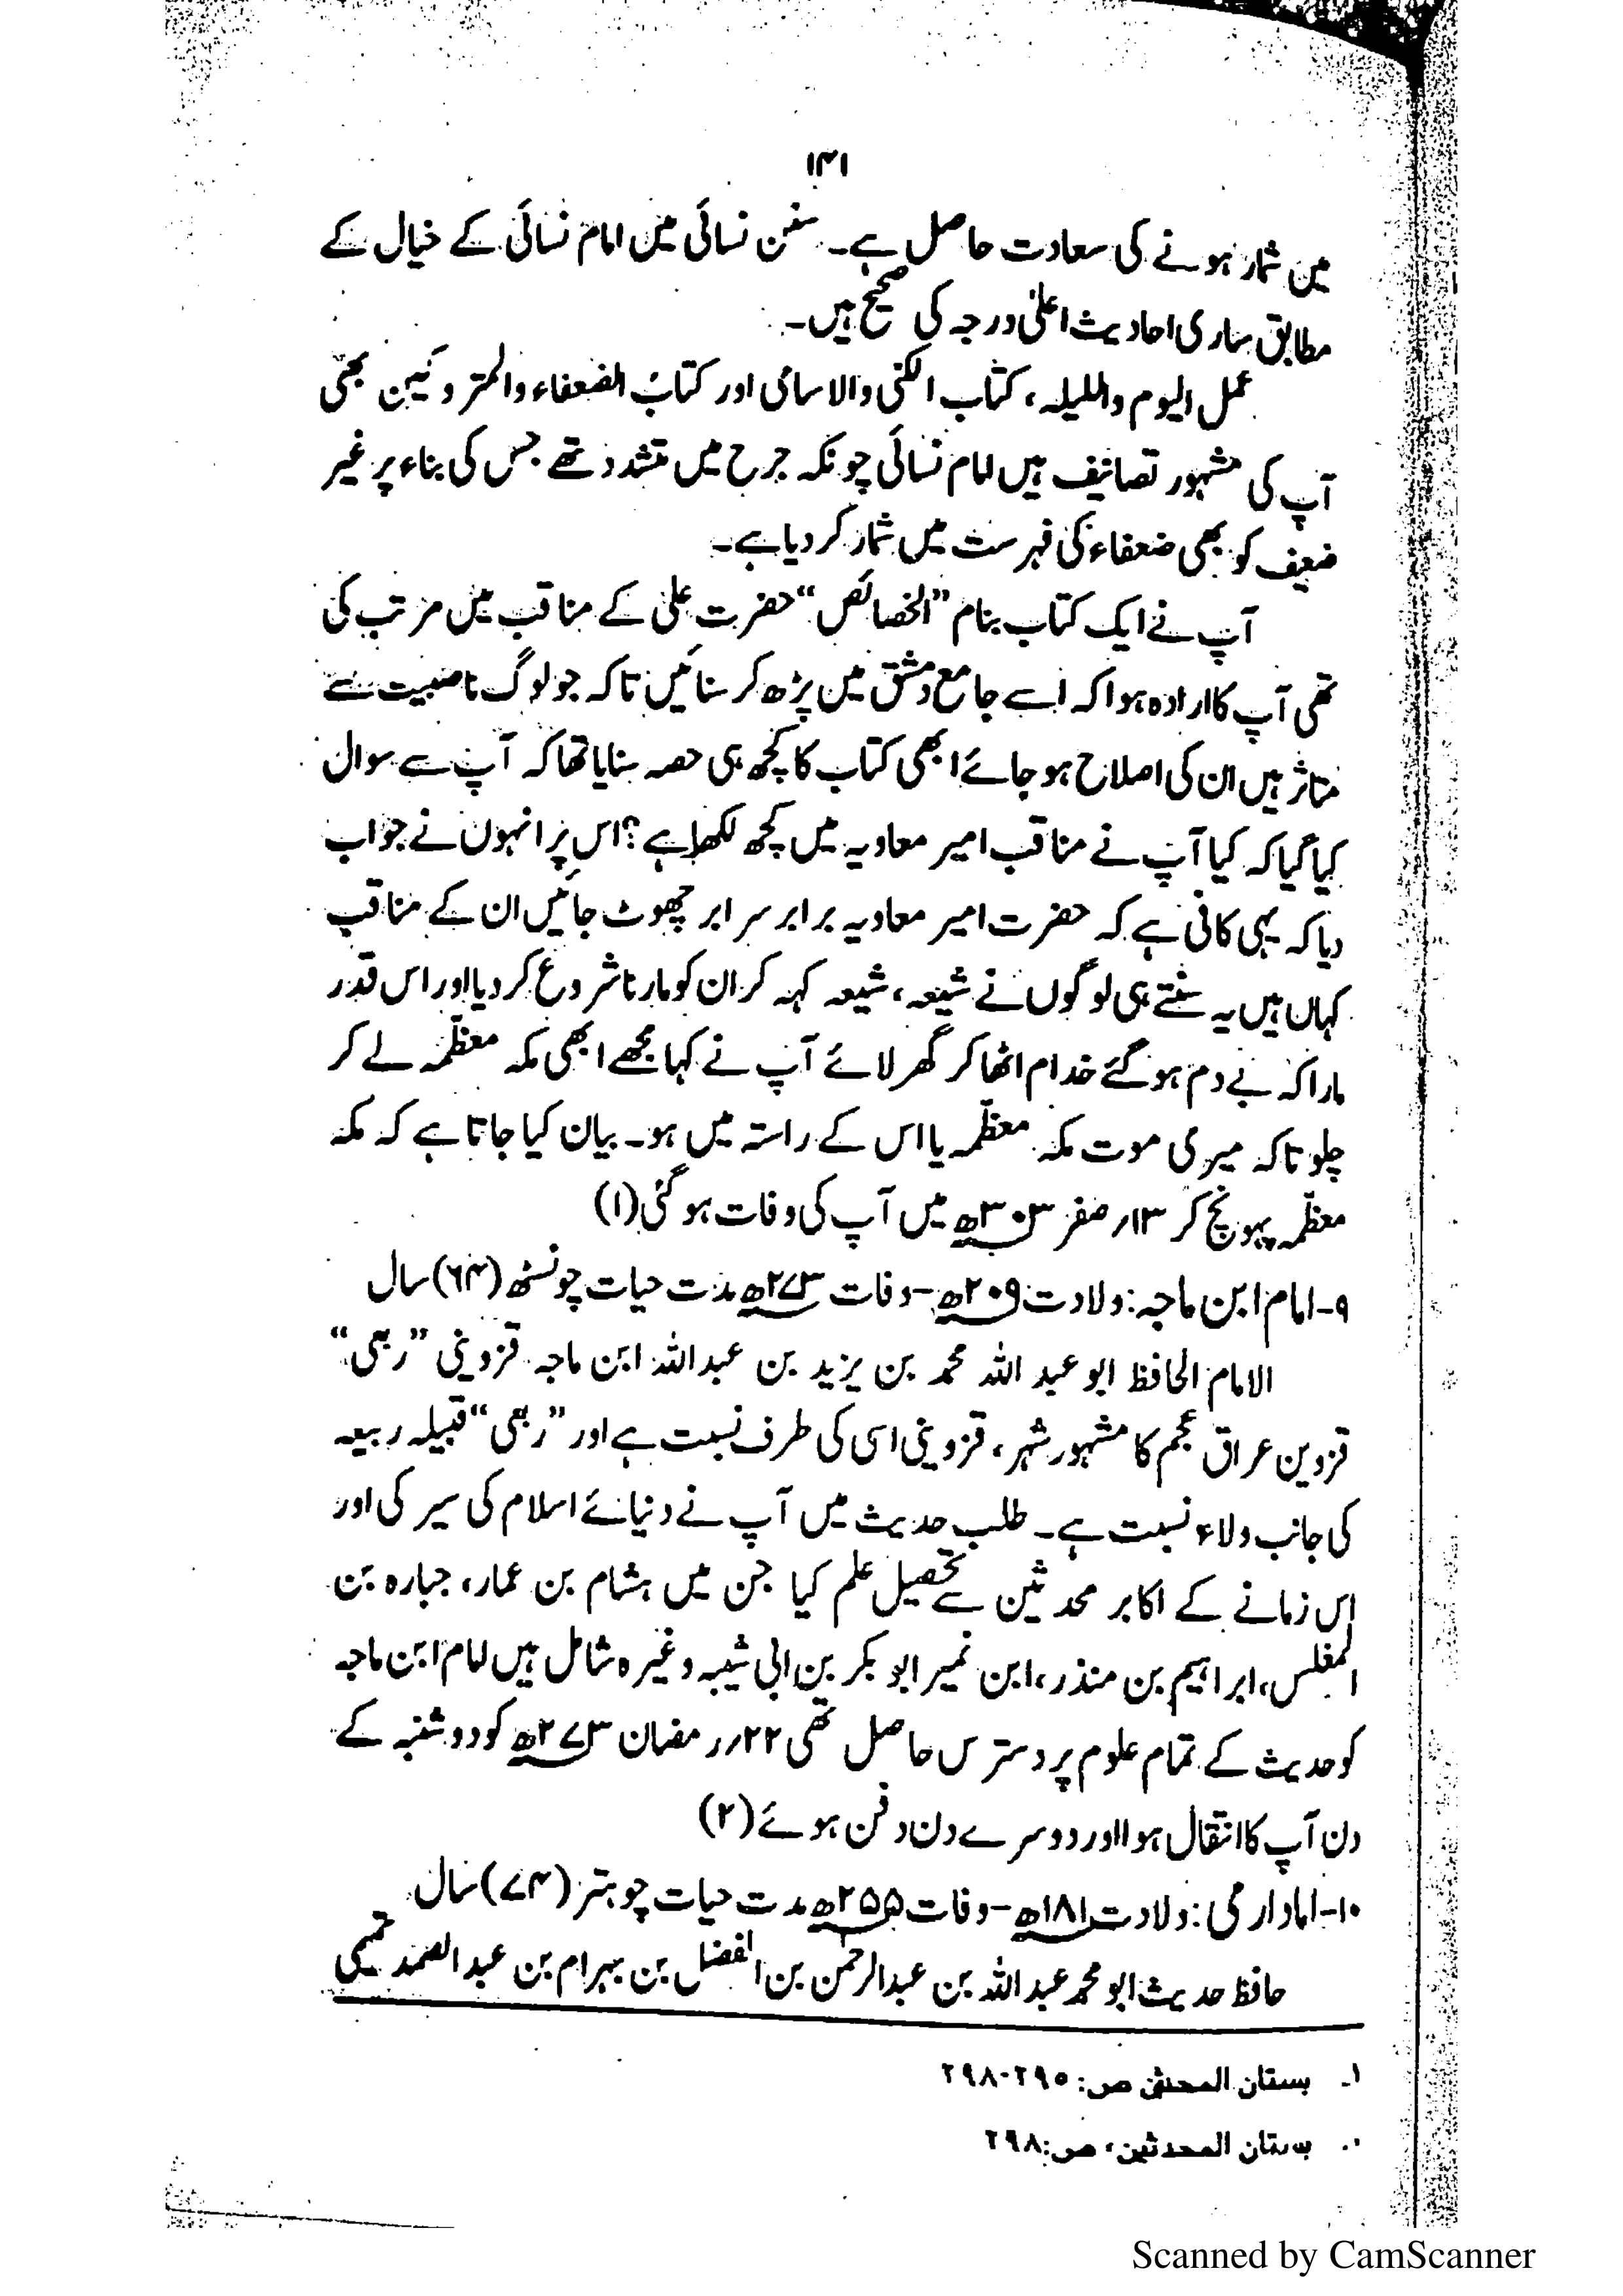 ۱۴۱
میں شمار ہونے کی سعادت حاصل ہے۔ سنن نسائی میں امام نسائی کے خیال کے
مطابق ساری احادیث اعلیٰ درجہ کی صحیح ہیں۔
عمل الیوم واللیلہ، کتاب الکنی والاسامی اور کتاب الضعفاء والمتروکین بھی
آپ کی مشہور تصانیف ہیں امام نسائی چونکہ جرح میں متشدد تھے جس کی بناء پر غیر
ضعیف کو بھی ضعفاء کی فہرست میں شمار کر دیا ہے۔
آپ نے ایک کتاب بنام ”الخصائص“ حضرت علی کے مناقب میں مرتب کی
تھی آپ کا ارادہ ہوا کہ اسے جامع دمشق میں پڑھ کر سنائیں تاکہ جو لوگ ناصبیت سے
متاثر ہیں ان کی اصلاح ہو جائے ابھی کتاب کا کچھ ہی حصہ سنایا تھا کہ آپ سے سوال
کیا گیا کہ کیا آپ نے مناقب امیر معاویہ میں کچھ لکھا ہے؟ اس پر انہوں نے جواب
دیا کہ یہی کافی ہے کہ حضرت امیر معاویہ برابر سرابر چھوٹ جائیں ان کے مناقب
کہاں ہیں یہ سنتے ہی لوگوں نے شیعہ، شیعہ کہہ کر ان کو مارنا شروع کر دیا اور اس قدر
مارا کہ بے دم ہو گئے خدام اٹھا کر گھر لائے آپ نے کہا مجھے ابھی مکہ معظّمہ لے کر
چلو تاکہ میری موت مکہ معظّمہ یا اس کے راستہ میں ہو۔ بیان کیا جاتا ہے کہ مکہ
معظّمہ پہونچ کر ۱۳؍ صفر ۳۰۳ھ میں آپ کی وفات ہو گئی (۱)
۹-امام ابن ماجہ: ولادت ۲۰۹ھ-وفات ۲۷۳ھ مدت حیات چونسٹھ (۶۴) سال
الامام الحافظ ابو عبد اللہ محمد بن یزید بن عبداللہ ابن ماجہ قزوینی ”ربعی“
قزوین عراق عجم کا مشہور شہر، قزوینی اسی کی طرف نسبت ہے اور ”ربعی“ قبیلہ ربیعہ
کی جانب ولاء نسبت ہے۔ طلب حدیث میں آپ نے دنیائے اسلام کی سیر کی اور
اس زمانے کے اکابر محدثین سے تحصیل علم کیا جن میں ہشام بن عمار، جبارہ بن
المغلس، ابراہیم بن منذر، ابن نمیر ابو بکر بن ابی شیبہ وغیرہ شامل ہیں امام ابن ماجہ
کو حدیث کے تمام علوم پر دسترس حاصل تھی ۲۲؍ رمضان ۲۷۳ھ کو دو شنبہ کے
دن آپ کا انتقال ہوا اور دوسرے دن دفن ہوئے (۲)
۱۰-امادارمی: ولادت ۱۸۱ھ-وفات ۲۵۵ھ مدت حیات چوہتر (۷۴) سال
حافظ حدیث ابو محمد عبد اللہ بن عبدالرحمن بن الفضل بن بہرام بن عبد الصمد تمیمی
۱۔ بستان المحدثین ص: ۲۹۵-۲۹۸
بستان المحدثین، ص: ۲۹۸
Scanned by CamScanner